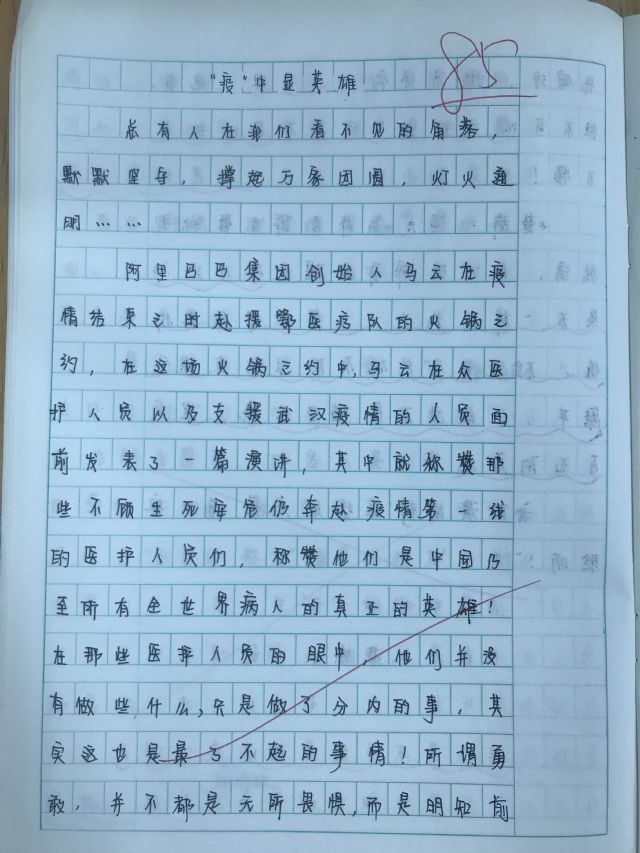 85
“疫”中显英雄
总有人在我们看不见的角落，
默默坚守，撑起万家团圆，灯火通
明……
阿里巴巴集团创始人马云在疫
情结束之时赴援鄂医疗队的火锅之
约，在这场火锅之约中，马云在众医
护人员以及支援武汉疫情的人员面
前发表了一篇演讲，其中就称赞那
些不顾生死安危仍奔赴疫情第一线
的医护人员们，称赞他们是中国乃
至所有全世界病人的真正的英雄！
在那些医护人员的眼中，他们并没
有做些什么，只是做了分内的事，其
实这也是最了不起的事情！所谓勇
敢，并不都是无所畏惧，而是明知前